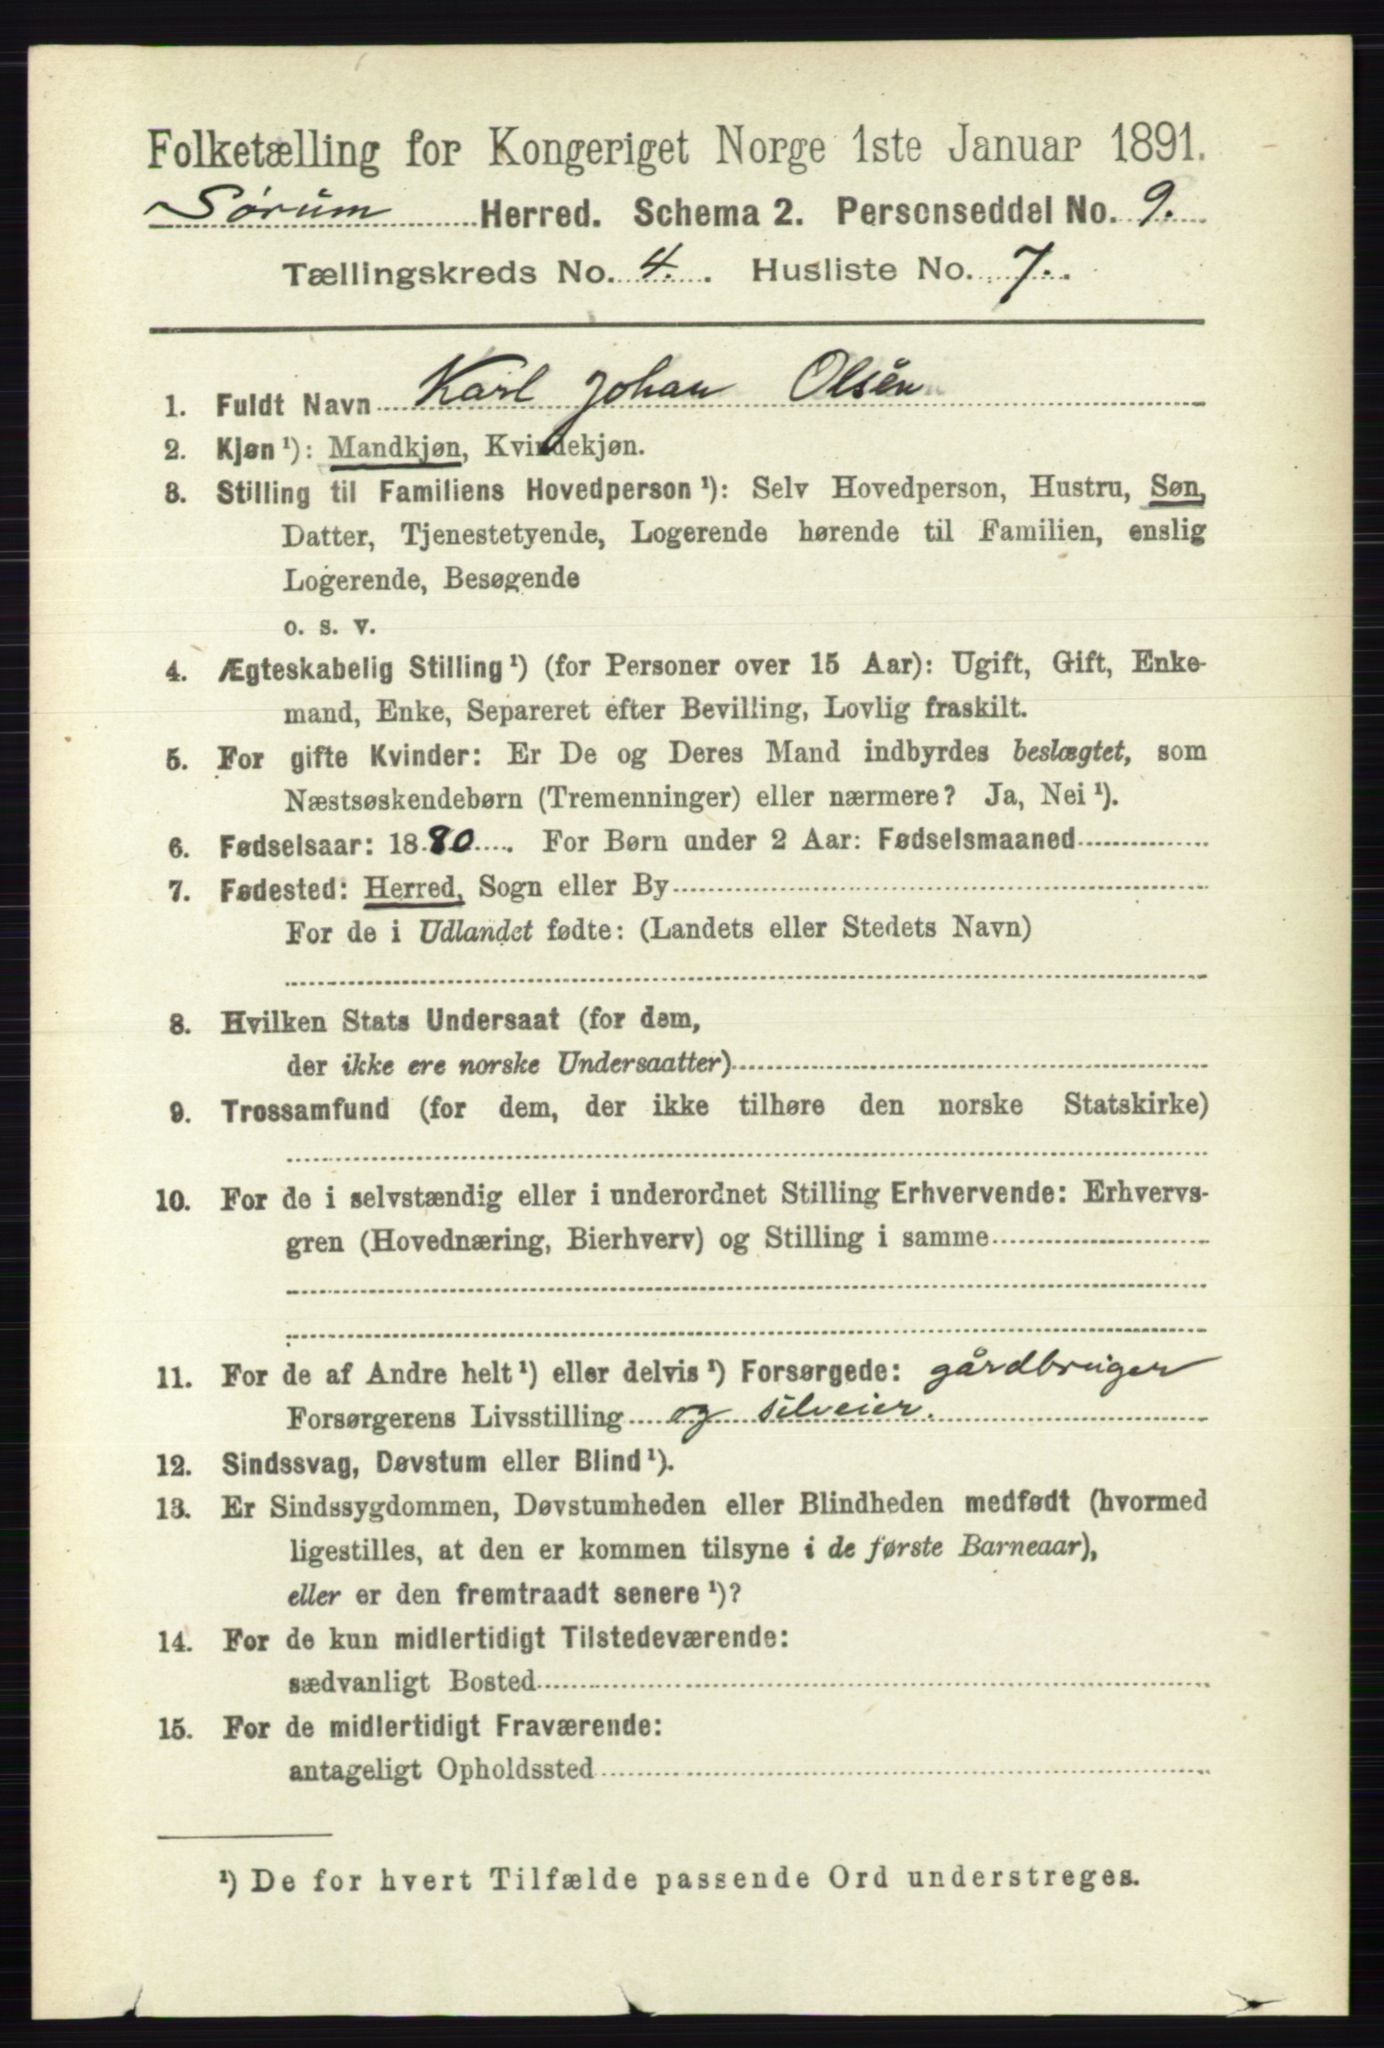 Folketælling for Kongeriget Norge 1ste Januar 1891.
Sørum Herred. Schema 2. Personseddel No. 9.
Tællingskreds No. 4. Husliste No. 7.
1. Fuldt Navn Karl Johan Olsen
2. Kjøn¹): Mandkjøn, Kvindekjøn.
3. Stilling til Familiens Hovedperson¹): Selv Hovedperson, Hustru, Søn,
Datter, Tjenestetyende, Logerende hørende til Familien, enslig
Logerende, Besøgende
o. s. v.
4. Ægteskabelig Stilling¹) (for Personer over 15 Aar): Ugift, Gift, Enke-
mand, Enke, Separeret efter Bevilling, Lovlig fraskilt.
5. For gifte Kvinder: Er De og Deres Mand indbyrdes beslægtet, som
Næstsøskendebørn (Tremenninger) eller nærmere? Ja, Nei¹).
6. Fødselsaar: 1880. For Børn under 2 Aar: Fødselsmaaned
7. Fødested: Herred, Sogn eller By
For de i Udlandet fødte: (Landets eller Stedets Navn)
8. Hvilken Stats Undersaat (for dem,
der ikke ere norske Undersaatter)
9. Trossamfund (for dem, der ikke tilhøre den norske Statskirke)
10. For de i selvstændig eller i underordnet Stilling Erhvervende: Erhvervs-
gren (Hovednæring, Bierhverv) og Stilling i samme
11. For de af Andre helt¹) eller delvis¹) Forsørgede: gårdbruger
Forsørgerens Livsstilling og silveier.
12. Sindssvag, Døvstum eller Blind¹).
13. Er Sindssygdommen, Døvstumheden eller Blindheden medfødt (hvormed
ligestilles, at den er kommen tilsyne i de første Barneaar),
eller er den fremtraadt senere¹)?
14. For de kun midlertidigt Tilstedeværende:
sædvanligt Bosted
15. For de midlertidigt Fraværende:
antageligt Opholdssted
¹) De for hvert Tilfælde passende Ord understreges.